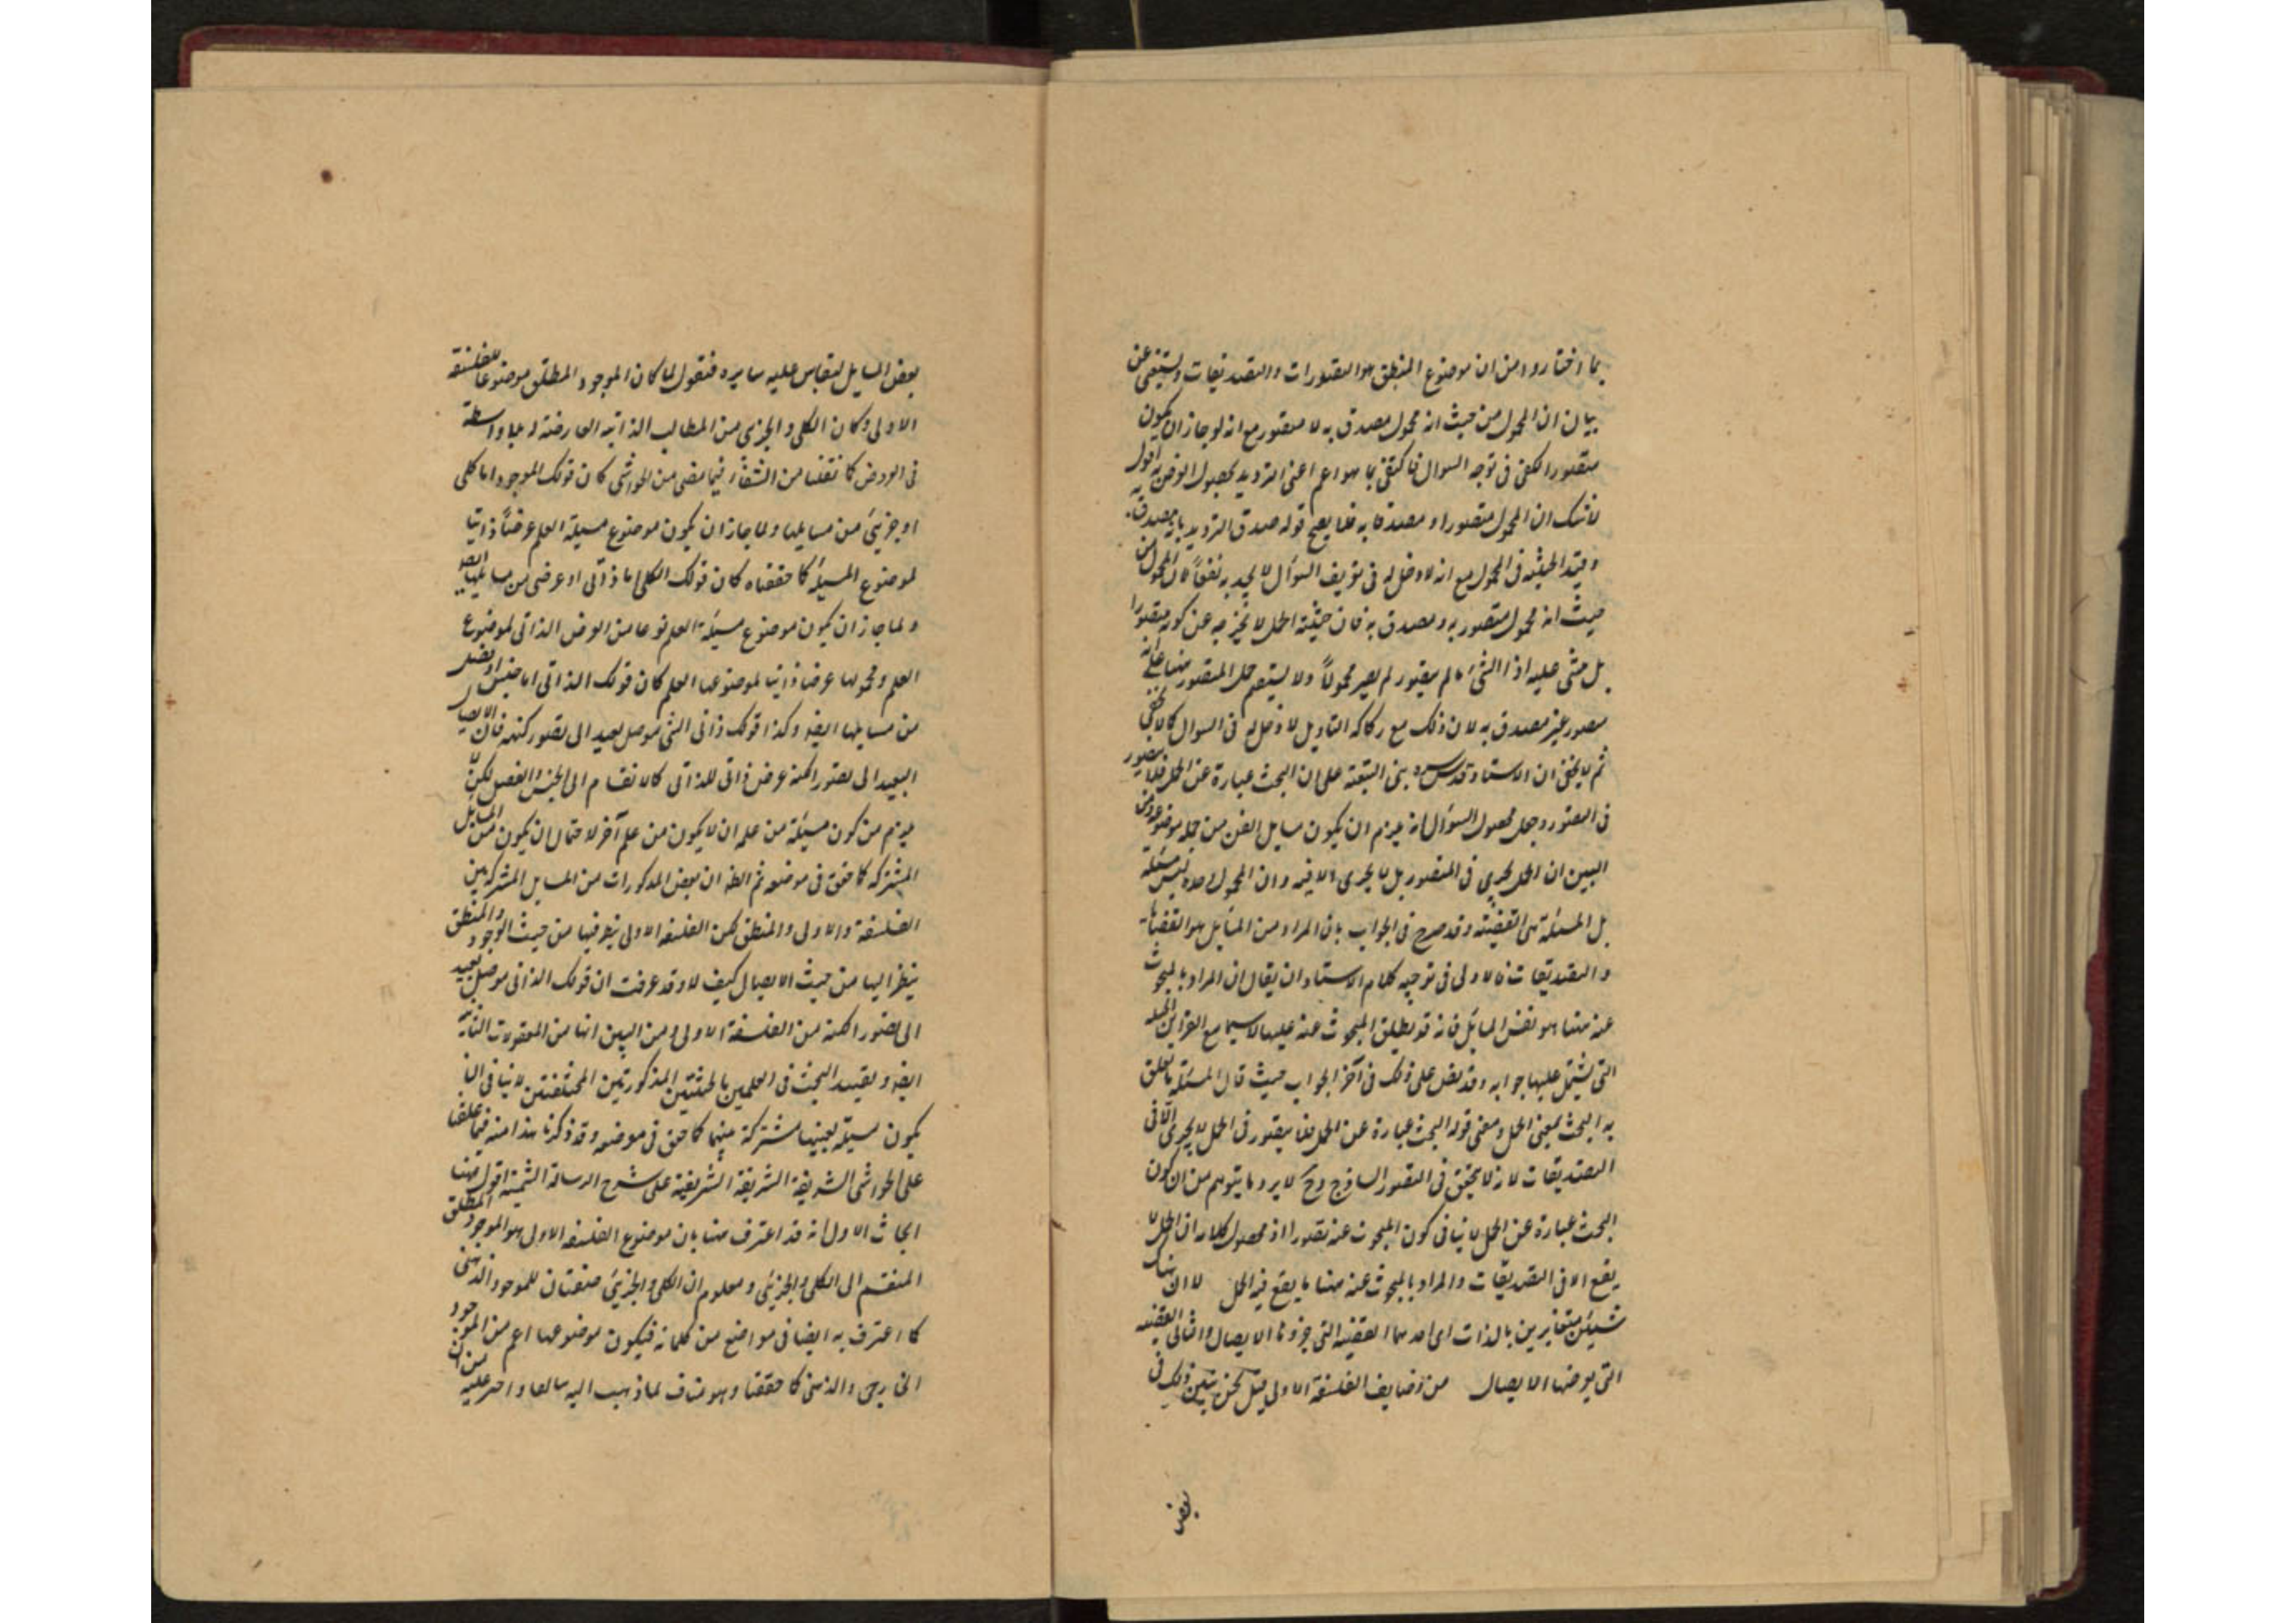 بما اختاروا من ان موضوع المنطق هو التصورات والتصديقات ويستغنى عن
بيان ان المحمول من حيث انه محمول مصدق به لا متصور مع انه لو جاز ان يكون
متصورا لكفى فى توجه السوال فاكتفى بما هو اعم اعنى الترديد لحصول الغرض به اقول
لا شك ان المحمول متصور او مصدقا به فلا يصح قوله صدق الترديد
وقيد الحيثية فى المحمول مع انه لا دخل له فى السوال لا يجديه نفعا لان المحمول من
حيث انه محمول متصور به ومصدق به فان حيثية الحمل لا تخرجه عن كونه متصورا
بل اذا الشى ما لم يتصور لم يصر محمولا ولا يستقيم حمل المتصور هنا على انه
متصور غير مصدق به لان ذلك مع ركاكة التاويل لا دخل له فى السوال كما لا يخفى
ثم لا يخفى ان الاستاد قدس سره بنى على ان البحث عبارة عن الحمل فلا يتصور
فى التصور وجعل محصول السؤال انه يلزم ان يكون مسايل الفن من جملة موضوعه ومن
البين ان الحمل يجرى فى المتصور بل لا يجرى الا فيه وان المحمول وحده ليس مسئلة
بل المسئلة هى القضية وقد صرح فى الجواب بان المراد من المسايل هو القضايا
والتصديقات فالاولى فى توجيه كلام الاستاد ان يقال ان المراد بالمبحوث
عنه هنا هو نفس المسايل فانه قد يطلق المبحوث عنه عليها لا سيما مع القراين الجلية
التى يشتمل عليها جوابه وقد نص على ذلك فى آخر الجواب حيث قال المسئلة ما تعلق
به البحث بمعنى الحمل ومعنى قوله البحث عبارة عن الحمل فلا يتصور فى الحمل لا يجرى الا فى
التصديقات لانه لا يتحقق فى التصور الساذج وح لا يرد ما يتوهم من ان كون
البحث عبارة عن الحمل لا ينافى كون المبحوث عنه تصورا اذ محصول كلامه ان الحمل لا
يقع الا فى التصديقات والمراد بالمبحوث عنه هنا ما يقع فيه الحمل لا ان هناك
شيئين متغايرين بالذات اى احدهما القضية التى جزوها الايصال والثانى القضية
التى يعرضها الايصال من وظايف الفلسفة الاولى قيل نحن نبين ذلك فى
بعض
بعض المسايل ليقاس عليه سايره فنقول لما كان الموجود المطلق موضوعا للفلسفة
الاولى وكان الكلى والجزى من المطالب الذاتية العارضة له بلا واسطة
فى العروض كما نقلنا من الشفاء فيما مضى من الحواشى كان قولك الموجود اما كلى
او جزئى من مسايلها ولما جاز ان يكون موضوع مسيلة العلم عرضا ذاتيا
لموضوع المسيلة كما حققناه كان قولك الكلى اما ذاتى او عرضى من مسايلها ايضا
ولما جاز ان يكون موضوع مسيلة العلم نوعا من العرض الذاتى لموضوع
العلم ومحمولها عرضا ذاتيا لموضوعها العلم كان قولك الذاتى اما جنس او فصل
من مسايلها ايضا وكذا قولك ذاتى الشى موصل بعيد الى تصور كنهه فان الايصال
البعيد الى تصور الكنه عرض ذاتى للذاتى كالانقسام الى الجنس والفصل لكن
يلزم من كون مسيلة من علم ان لا يكون من علم آخر لاحتمال ان يكون من المسايل
المشتركة كما حقق فى موضعه ثم الظ ان بعض المذكورات من المسايل المشتركة بين
الفلسفة الاولى والمنطق لكن الفلسفة الاولى ينظر فيها من حيث الوجود والمنطق
ينظر اليها من حيث الايصال كيف لا وقد عرفت ان قولك الذاتى موصل بعيد
الى تصور الكنه من الفلسفة الاولى ومن البين انها من المعقولات الثانية
ايضا وتقييد البحث فى العلمين بالحيثيتين المذكورتين المختلفتين لا ينافى ان
يكون مسيلة بعينها مشتركة بينهما كما حقق فى موضعه وقد ذكرنا هذا منه فيما علقنا
على الحواشى الشريفة الشريفية على شرح الرسالة الشمسية اقول هنا
ابحاث الاول انه قد اعترف هنا بان موضوع الفلسفة الاولى هو الموجود المطلق
المنقسم الى الكلى والجزئى ومعلوم ان الكلى والجزئى صفتان للموجود الذهنى
كما اعترف به ايضا فى مواضع من كلماته فيكون موضوعها اعم من الموجود
الخارجى والذهنى كما حققنا وهو مناف لما ذهب اليه سالفا واصر عليه من ان